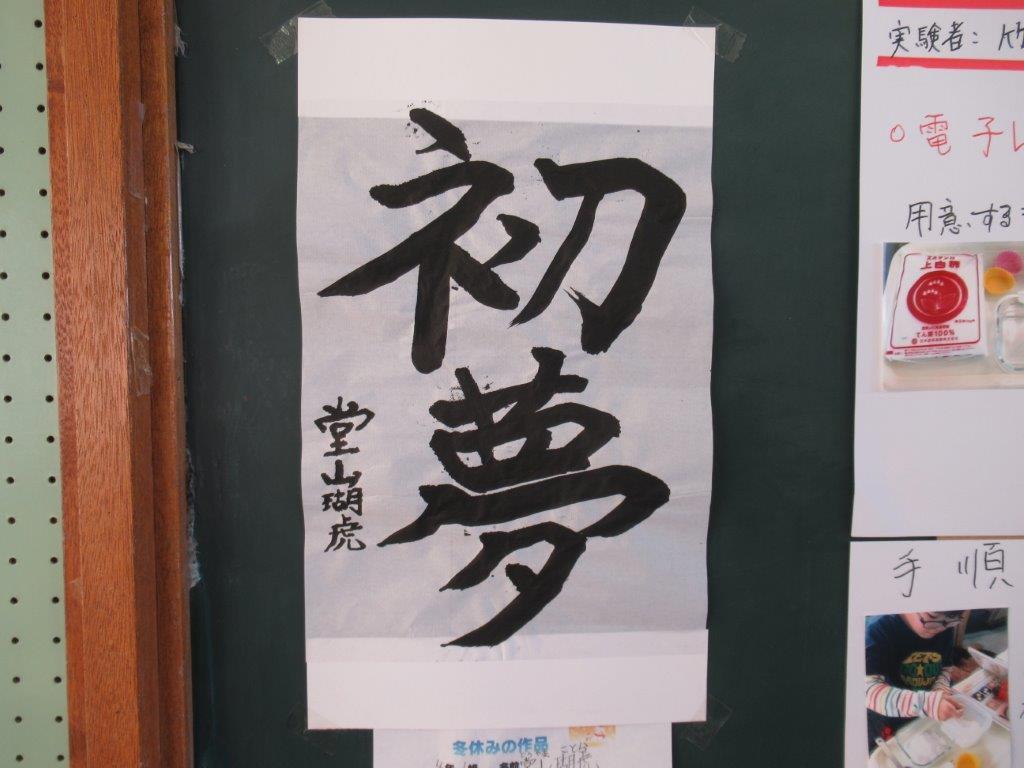 初夢
堂山瑚虎
冬休みの作品
実験者:
○電子レ
用意する
上白糖
てん菜100%
手順